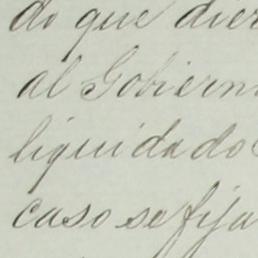 do que dier
al Gobiern
liquidado
caso se fija